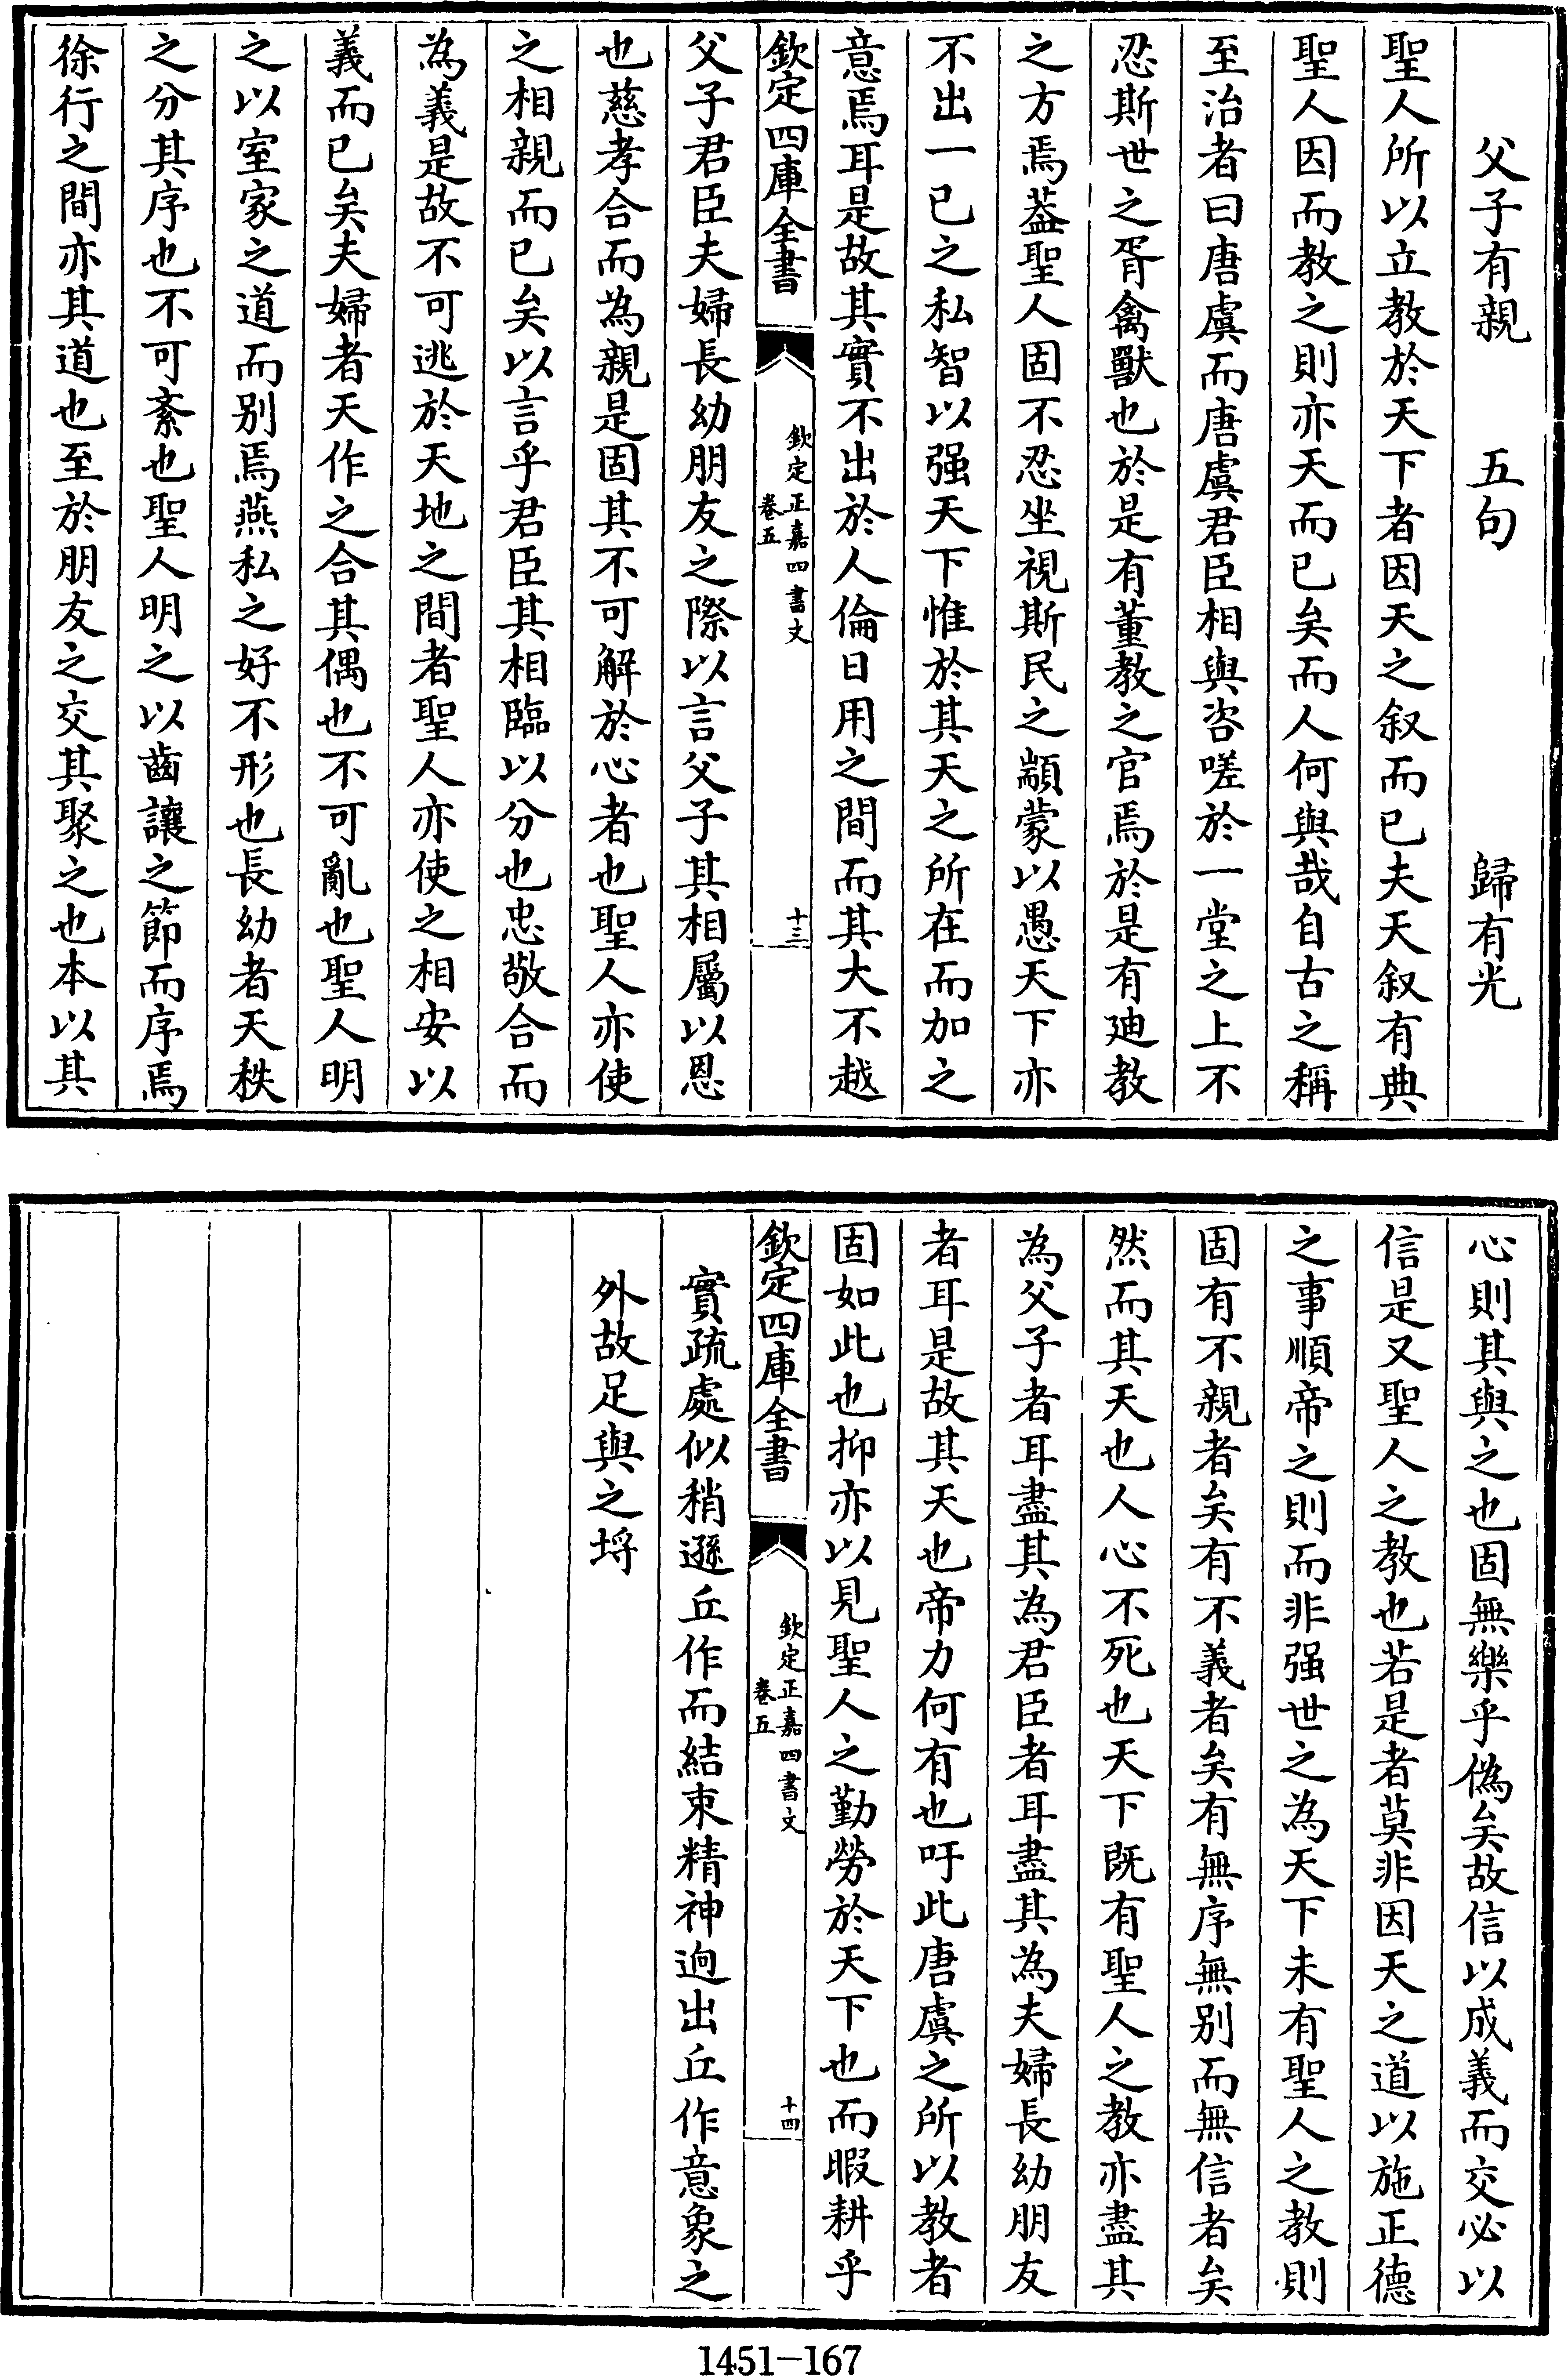 父子有親　五句　歸有光
聖人所以立教於天下者因天之叙而已夫天叙有典
聖人因而教之則亦天而已矣而人何與哉自古之稱
至治者曰唐虞而唐虞君臣相與咨嗟於一堂之上不
忍斯世之胥禽獸也於是有董教之官焉於是有廸教
之方焉葢聖人固不忍坐視斯民之顓蒙以愚天下亦
不出一已之私智以强天下惟於其天之所在而加之
意焉耳是故其實不出於人倫日用之間而其大不越
欽定四庫全書
欽定正嘉四書文
卷五
十三
父子君臣夫婦長幼朋友之際以言父子其相屬以恩
也慈孝合而為親是固其不可解於心者也聖人亦使
之相親而已矣以言乎君臣其相臨以分也忠敬合而
為義是故不可逃於天地之間者聖人亦使之相安以
義而已矣夫婦者天作之合其偶也不可亂也聖人明
之以室家之道而别焉燕私之好不形也長幼者天秩
之分其序也不可紊也聖人明之以齒讓之節而序焉
徐行之間亦其道也至於朋友之交其聚之也本以其
心則其與之也固無樂乎偽矣故信以成義而交必以
信是又聖人之教也若是者莫非因天之道以施正德
之事順帝之則而非强世之為天下未有聖人之教則
固有不親者矣有不義者矣有無序無别而無信者矣
然而其天也人心不死也天下既有聖人之教亦盡其
為父子者耳盡其為君臣者耳盡其為夫婦長幼朋友
者耳是故其天也帝力何有也吁此唐虞之所以教者
固如此也抑亦以見聖人之勤勞於天下也而暇耕乎
欽定四庫全書
欽定正嘉四書文
卷五
十四
實疏處似稍遜丘作而結束精神逈出丘作意象之
外故足與之埒
1451-167